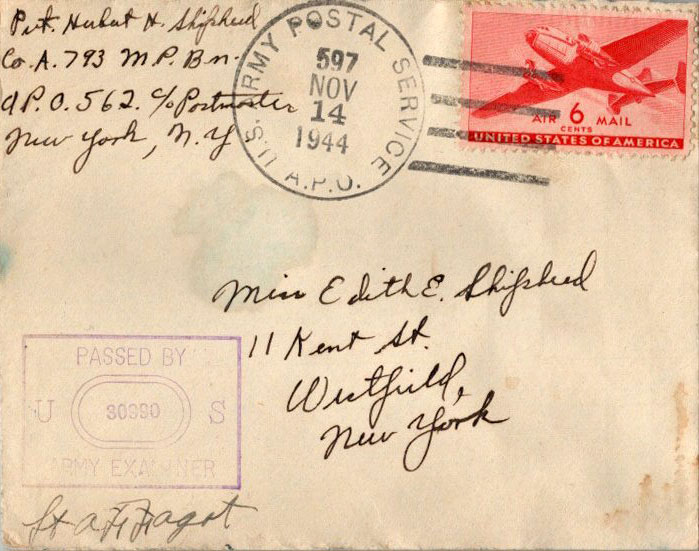 Pvt. Hubert H. Shipherd
Co. A. 793 M.P. Bn.
A.P.O. 562. c/o Postmaster
New York, N.Y.
U.S. ARMY POSTAL SERVICE
597
NOV
14
1944
A.P.O.
AIR 6 MAIL
CENTS
UNITED STATES OF AMERICA
Miss Edith E. Shipherd
11 Kent St.
Westfield,
New York
PASSED BY
U 30990 S
ARMY EXAMINER